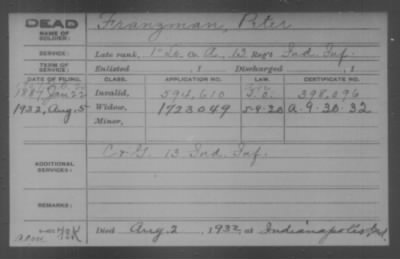 DEAD
NAME OF SOLDIER: Frangman, Peter
SERVICE: Late rank, 1" Lt. Co. A, 13 Reg't Ind. Inf.
TERM OF SERVICE: Enlisted , 1 Discharged , 1
DATE OF FILING. CLASS. APPLICATION NO. LAW. CERTIFICATE NO.
1889 Jan 22 Invalid, 594,610 398,096
1932, Aug. 5 Widow, 1723049 5-9-20 A-9-30-32
Minor,
ADDITIONAL SERVICES: C & G 13 Ind. Inf.
REMARKS:
Died Aug. 2, 1932, at Indianapolis, Ind.